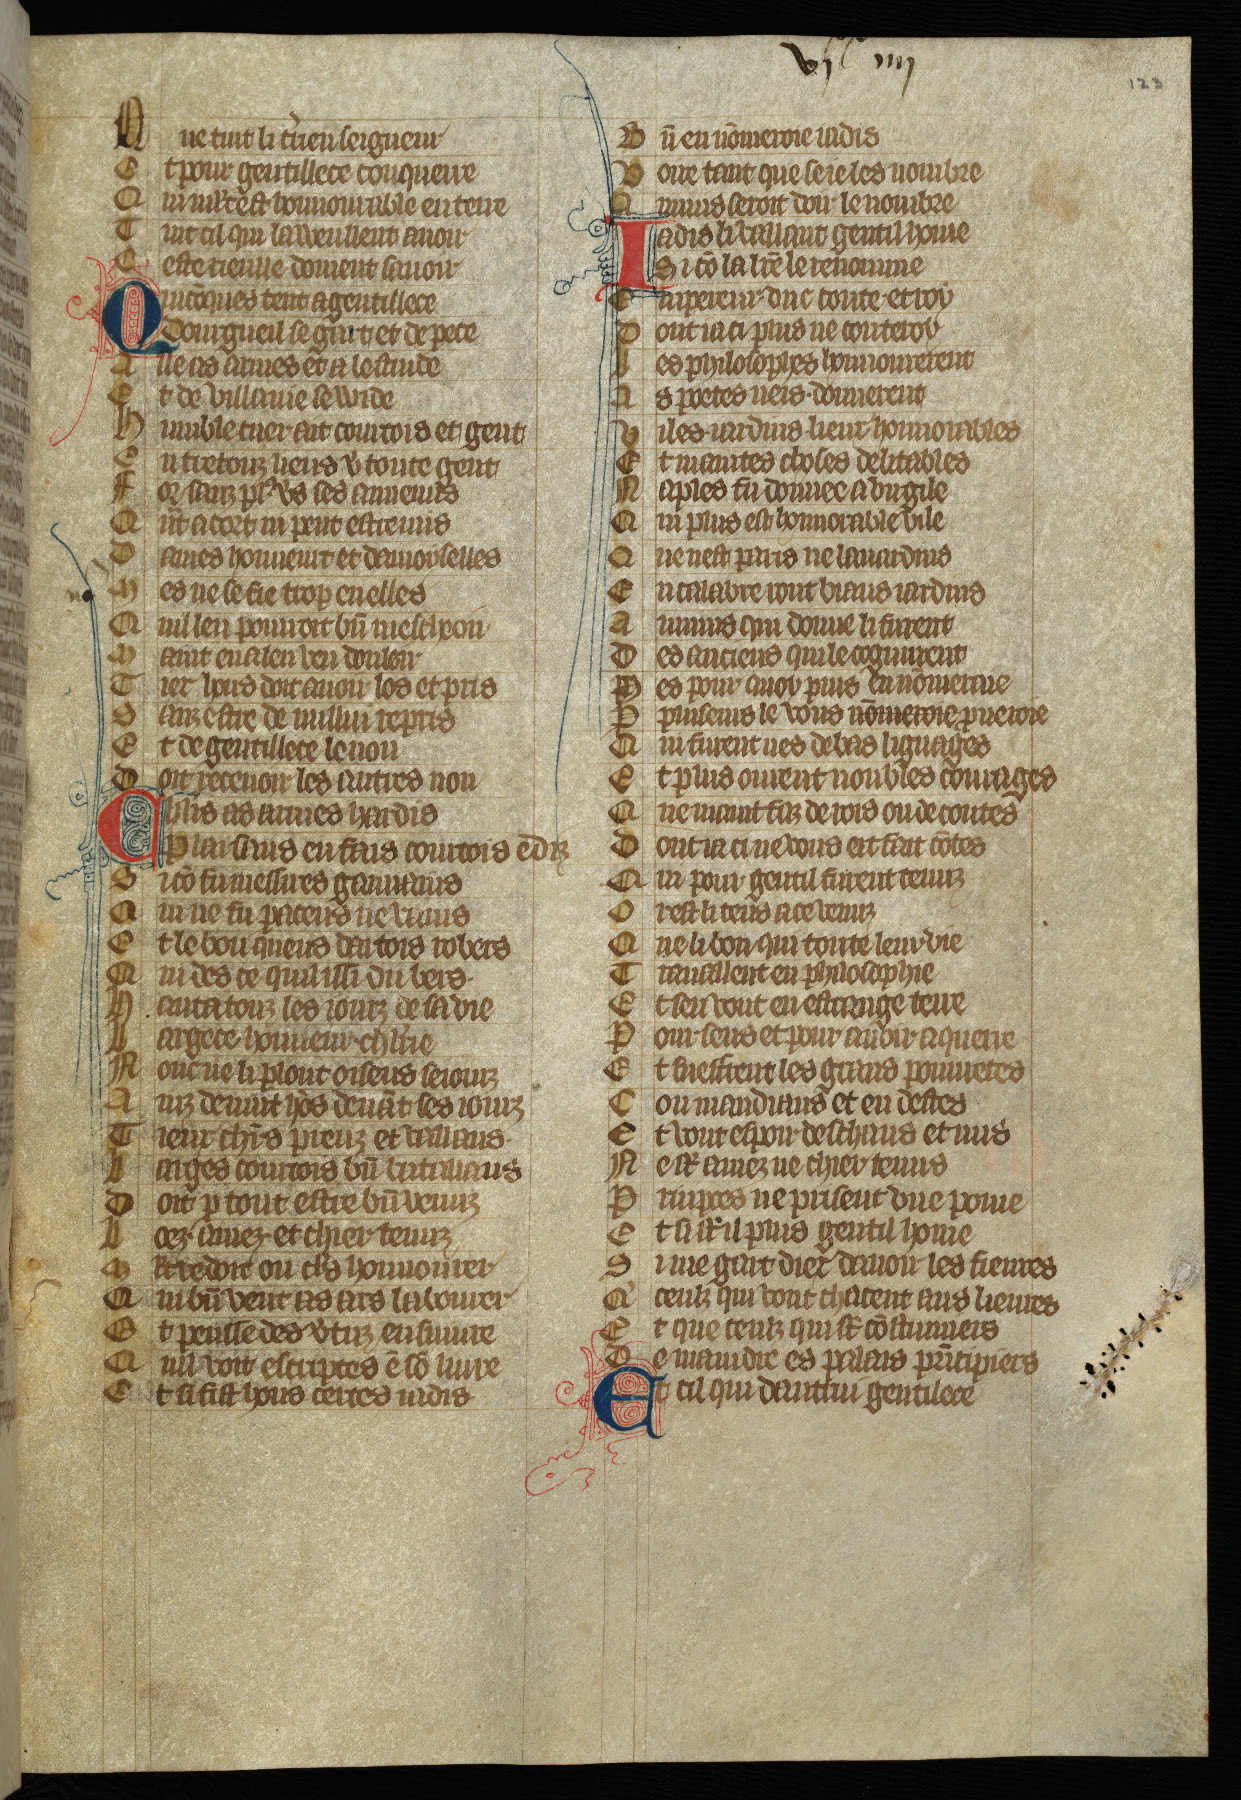 vi iiii
123
Que tuit li t'rien seigneur
Et pour gentillece conquerre
Qui m'lt est honnourable en terre
Tuit cil qui la weullent auoir
Ceste rieulle doiuent sauoir
Quicōques tent a gentillece
Dourgueil se gart et de pece
Aille as armes et a lestude
Et de villanie se wide
Humble cuer ait courtois et gent
En trestouz lieus v̓ toute gent
For sanz pl' v̓s ses anemis
Qn̄t acort ni peut estre mis
Dames honneurt et damoyselles
Mes ne se fie trop en elles
Quil len pourroit bn̄ meschooir
Maint en a len veu douloir
Tiex hons doit auoir los et pris
Sanz estre de nullui repris
Et de gentillece le non
Doit receuoir les autres non
Chlrs as armes hardis
Plaisans en fais courtois ē diz
Si cō fu messires gauuains
Qui ne fu pareus ne vains
Et le bon quens dartois robers
Qui des ce quil issi du bers
Hanta touz les iourz de sa vie
Largece honneur chlrie
Nonc ne li plout oiseus seiourz
Ainz deuint hōs deuāt ses iourz
Tieux chlrs preuz et vaillans
Larges courtois bn̄ bataillans
Doit p tout estre bn̄ venuz
Loez amez et chier tenuz
Mlt redoit on clers honnourer
Qui bn̄ veut as ars labourer
Et pensse des v̓tuz ensuiure
Quil voit escriptes ē sō liure
Et si fist hons certes iadis
Bn̄ en nōmeroie iadis
Voire tant que se ie les nombre
Anuis seroit doir le nombre
Iadis li vaillant gentil home
Si cō la lrē le renomme
Empereur duc conte et roy
Dont ia ci plus ne conteroy
Les philosophes honnourerent
As poetes neis donnerent
Viles iardins lieux honnourables
Et maintes choses delitables
Naples fu donnee a virgile
Qui plus est honnorable vile
Que nest paris ne lauardins
En calabre rout biaus iardins
Annius qui donne li furent
Des anciens qui le cognurent
Mes pour quoy plus en nōmeroie
Par pluiseurs le vous nōmeroie prueroie
Qui furent nes de bas lignages
Et plus ourent noubles courages
Que maint filz de rois ou de contes
Dont ia ci ne vous ert fait cōtes
Qui pour gentil furent tenuz
Or est li tens a ce venuz
Que li bon qui toute leur vie
Trauaillent en philosophie
Et sen vont en estrange terre
Pour sens et pour auoir aquerre
Et sueffrent les grans pouuretes
Con mandians et en dettes
Et vont espoir deschaus et nus
Ne sont amez ne chier tenus
Princes ne prisent vne pome
Et si sont il plus gentil home
Si me gart diex dauoir les fieures
Que ceulz qui vont chacent aus lieures
Et que ceulz qui sōt cōstumiers
De maindre es palais prīcipiers
Et cil qui dautrui gentilece